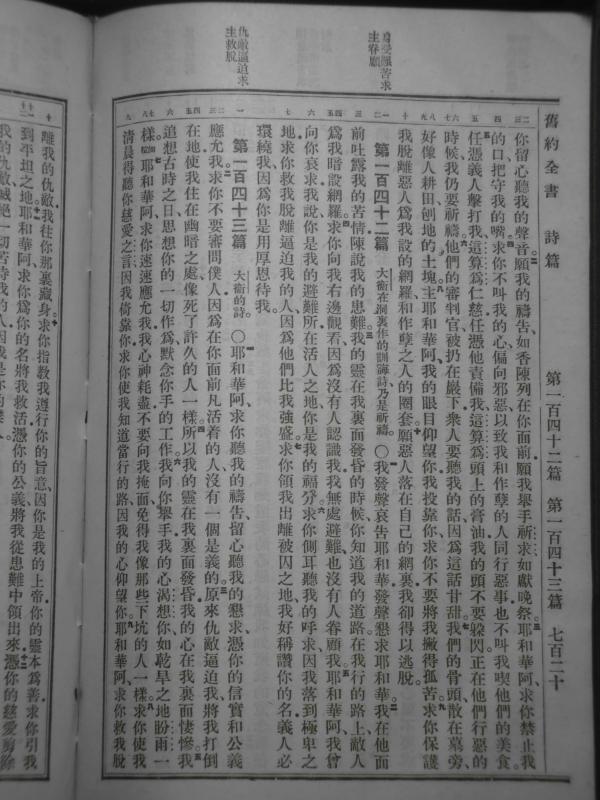 舊約全書　詩篇　第一百四十二篇　第一百四十三篇　七百二十
身受艱苦求
主眷顧
仇敵逼迫求
主救脫
你留心聽我的聲音願我的禱告如香陳列在你面前願我舉手祈求如獻晚祭耶和華阿求你禁止我
的口把守我的嘴求你不叫我的心偏向邪惡以致我和作孽的人同行惡事也不叫我喫他們的美食
任憑義人擊打我這算為仁慈任憑他責備我這算為頭上的膏油我的頭不要躲閃正在他們行惡的
時候我仍要祈禱他們的審判官被扔在巖下衆人要聽我的話因為這話甘甜我們的骨頭散在墓旁
好像人耕田刨地的土塊主耶和華阿我的眼目仰望你我投靠你求你不要將我撇得孤苦求你保護
我脫離惡人為我設的網羅和作孽之人的圈套願惡人落在自己的網裏我卻得以逃脫
第一百四十二篇　大衛在洞裏作的訓誨詩乃是祈禱　〇我發聲哀告耶和華發聲懇求耶和華我在他面
前吐露我的苦情陳說我的患難我的靈在我裏面發昏的時候你知道我的道路在我行的路上敵人
為我暗設網羅求你向我右邊觀看因為沒有人認識我我無處避難也沒有人眷顧我耶和華阿我曾
向你哀求我說你是我的避難所在活人之地你是我的福分求你側耳聽我的呼求因我落到極卑之
地求你救我脫離逼迫我的人因為他們比我強盛求你領我出離被囚之地我好稱讚你的名義人必
環繞我因為你是用厚恩待我
第一百四十三篇　大衛的詩　〇耶和華阿求你聽我的禱告留心聽我的懇求憑你的信實和公義
應允我求你不要審問僕人因為在你面前凡活着的人沒有一個是義的原來仇敵逼迫我將我打倒
在地使我住在幽暗之處像死了許久的人一樣所以我的靈在我裏面發昏我的心在我裏面悽慘我
追想古時之日思想你的一切作為默念你手的工作我向你舉手我的心渴想你如乾旱之地盼雨一
樣耶和華阿求你速速應允我我心神耗盡不要向我掩面免得我像那些下坑的人一樣求你使我
清晨得聽你慈愛之言因我倚靠你求你使我知道當行的路因我的心仰望你耶和華阿求你救我脫
離我的仇敵我往你那裏藏身求你指教我遵行你的旨意因你是我的上帝你的靈本為善求你引我
到平坦之地耶和華阿求你為你的名將我救活憑你的公義將我從患難中領出來憑你的慈愛剪除
我的仇敵滅絕一切苦待我的人因我是你的僕人